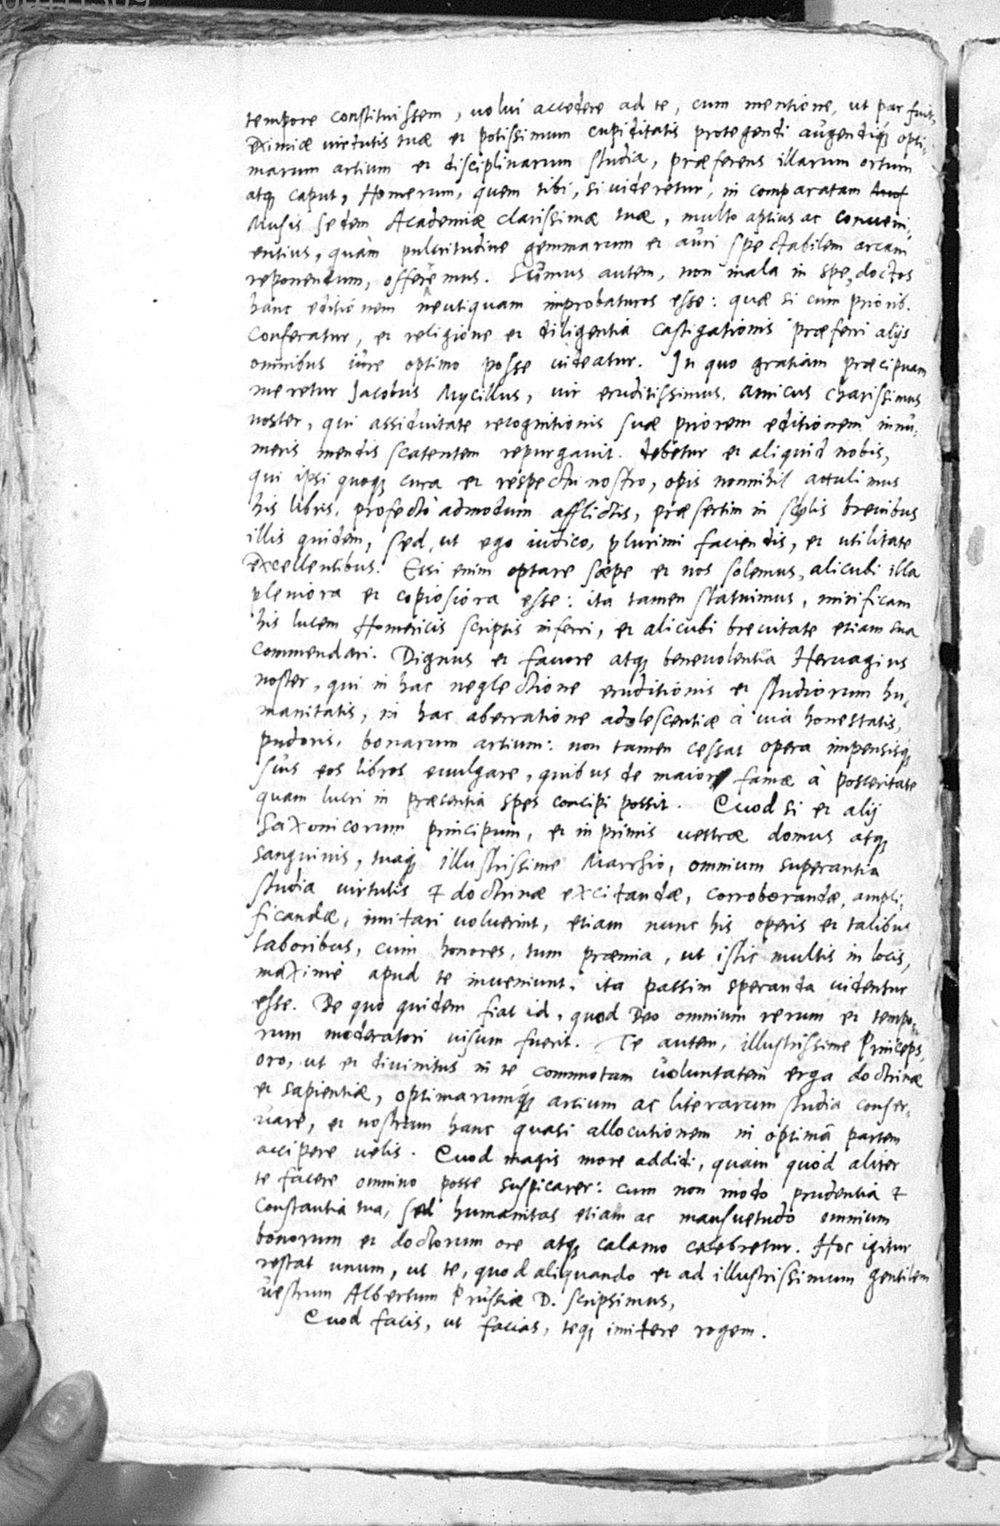 tempore constituissem, uolui accedere ad te, cum mentione, ut par fuit,
Eximiæ uirtutis tuæ et potissimum cupiditatis protegendi augendiq; opti-
marum artium et disciplinarum studia, præferens illarum ortum
atq; caput, Homerum, quem tibi, si uideretur, in comparatam
Musis sedem Academiæ clarissimæ tuæ, multo aptius ac conueni-
entius, quàm pulcritudine gemmarum et auri spectabilem arcam
reponendum, offerremus. Scimus autem, non mala in spe, doctos
hanc editionem neutiquam improbaturos esse: quæ si cum priorib.
conferatur, et religione et diligentia castigationis præferri alijs
omnibus iure optimo posse uideatur. In quo gratiam præcipuam
meretur Jacobus Mycillus, uir eruditissimus, amicus charissimus
noster, qui assiduitate recognitionis suæ priorem editionem innu-
meris mendis scatentem repurgauit. debetur et aliquid nobis,
qui ipsi quoq; cura et respectu nostro, opis nonnihil attulimus
his libris, profecto admodum afflictis, præsertim in scholis breuibus
illis quidem, sed, ut ego iudico, plurimi faciendis, et utilitate
excellentibus. Etsi enim optare sæpe et nos solemus, alicubi illa
pleniora et copiosiora esse: ita tamen statuimus, mirificam
his lucem Homericis scriptis inferri, et alicubi breuitate etiam sua
commendari. Dignus et fauore atq; beneuolentia Heruagius
noster, qui in hac neglectione eruditionis et studiorum hu-
manitatis, in hac aberratione adolescentiæ à uia honestatis,
pudoris, bonarum artium: non tamen cessat opera impensisq;
suis eos libros euulgare, quibus de maior famæ à posteritate
quam lucri in præsentia spes concipi possit. Quod si et alij
Saxonicorum principum, et in primis uestræ domus atq;
sanguinis, tuaq; illustrissime Marchio, omnium superantia
studia uirtutis & doctrinæ excitandæ, corroborandæ, ampli-
ficandæ, imitari uoluerint, etiam nunc his operis et talibus
laboribus, cum honores, tum præmia, ut istic multis in locis,
maxime apud te inueniunt, ita passim speranda uidentur
esse. De quo quidem fiat id, quod Deo omnium rerum et tempo-
rum moderatori uisum fuerit. Te autem, illustrissime Princeps,
oro, ut et diuinitus in te commotam uoluntatem erga doctrinæ
et sapientiæ, optimarumq; artium ac literarum studia conser-
uare, et nostram hanc quasi allocutionem in optimā partem
accipere uelis. Quod magis more addidi, quàm quòd aliter
te facere omnino posse suspicarer: cum non modo prudentia &
constantia tua, sed humanitas etiam ac mansuetudo omnium
bonorum et doctorum ore atq; calamo celebretur. Hoc igitur
restat unum, ut te, quod aliquando et ad illustrissimum gentilem
uestrum Albertum Prussiæ D. scripsimus,
Quod facis, ut facias, teq; imitere rogem.